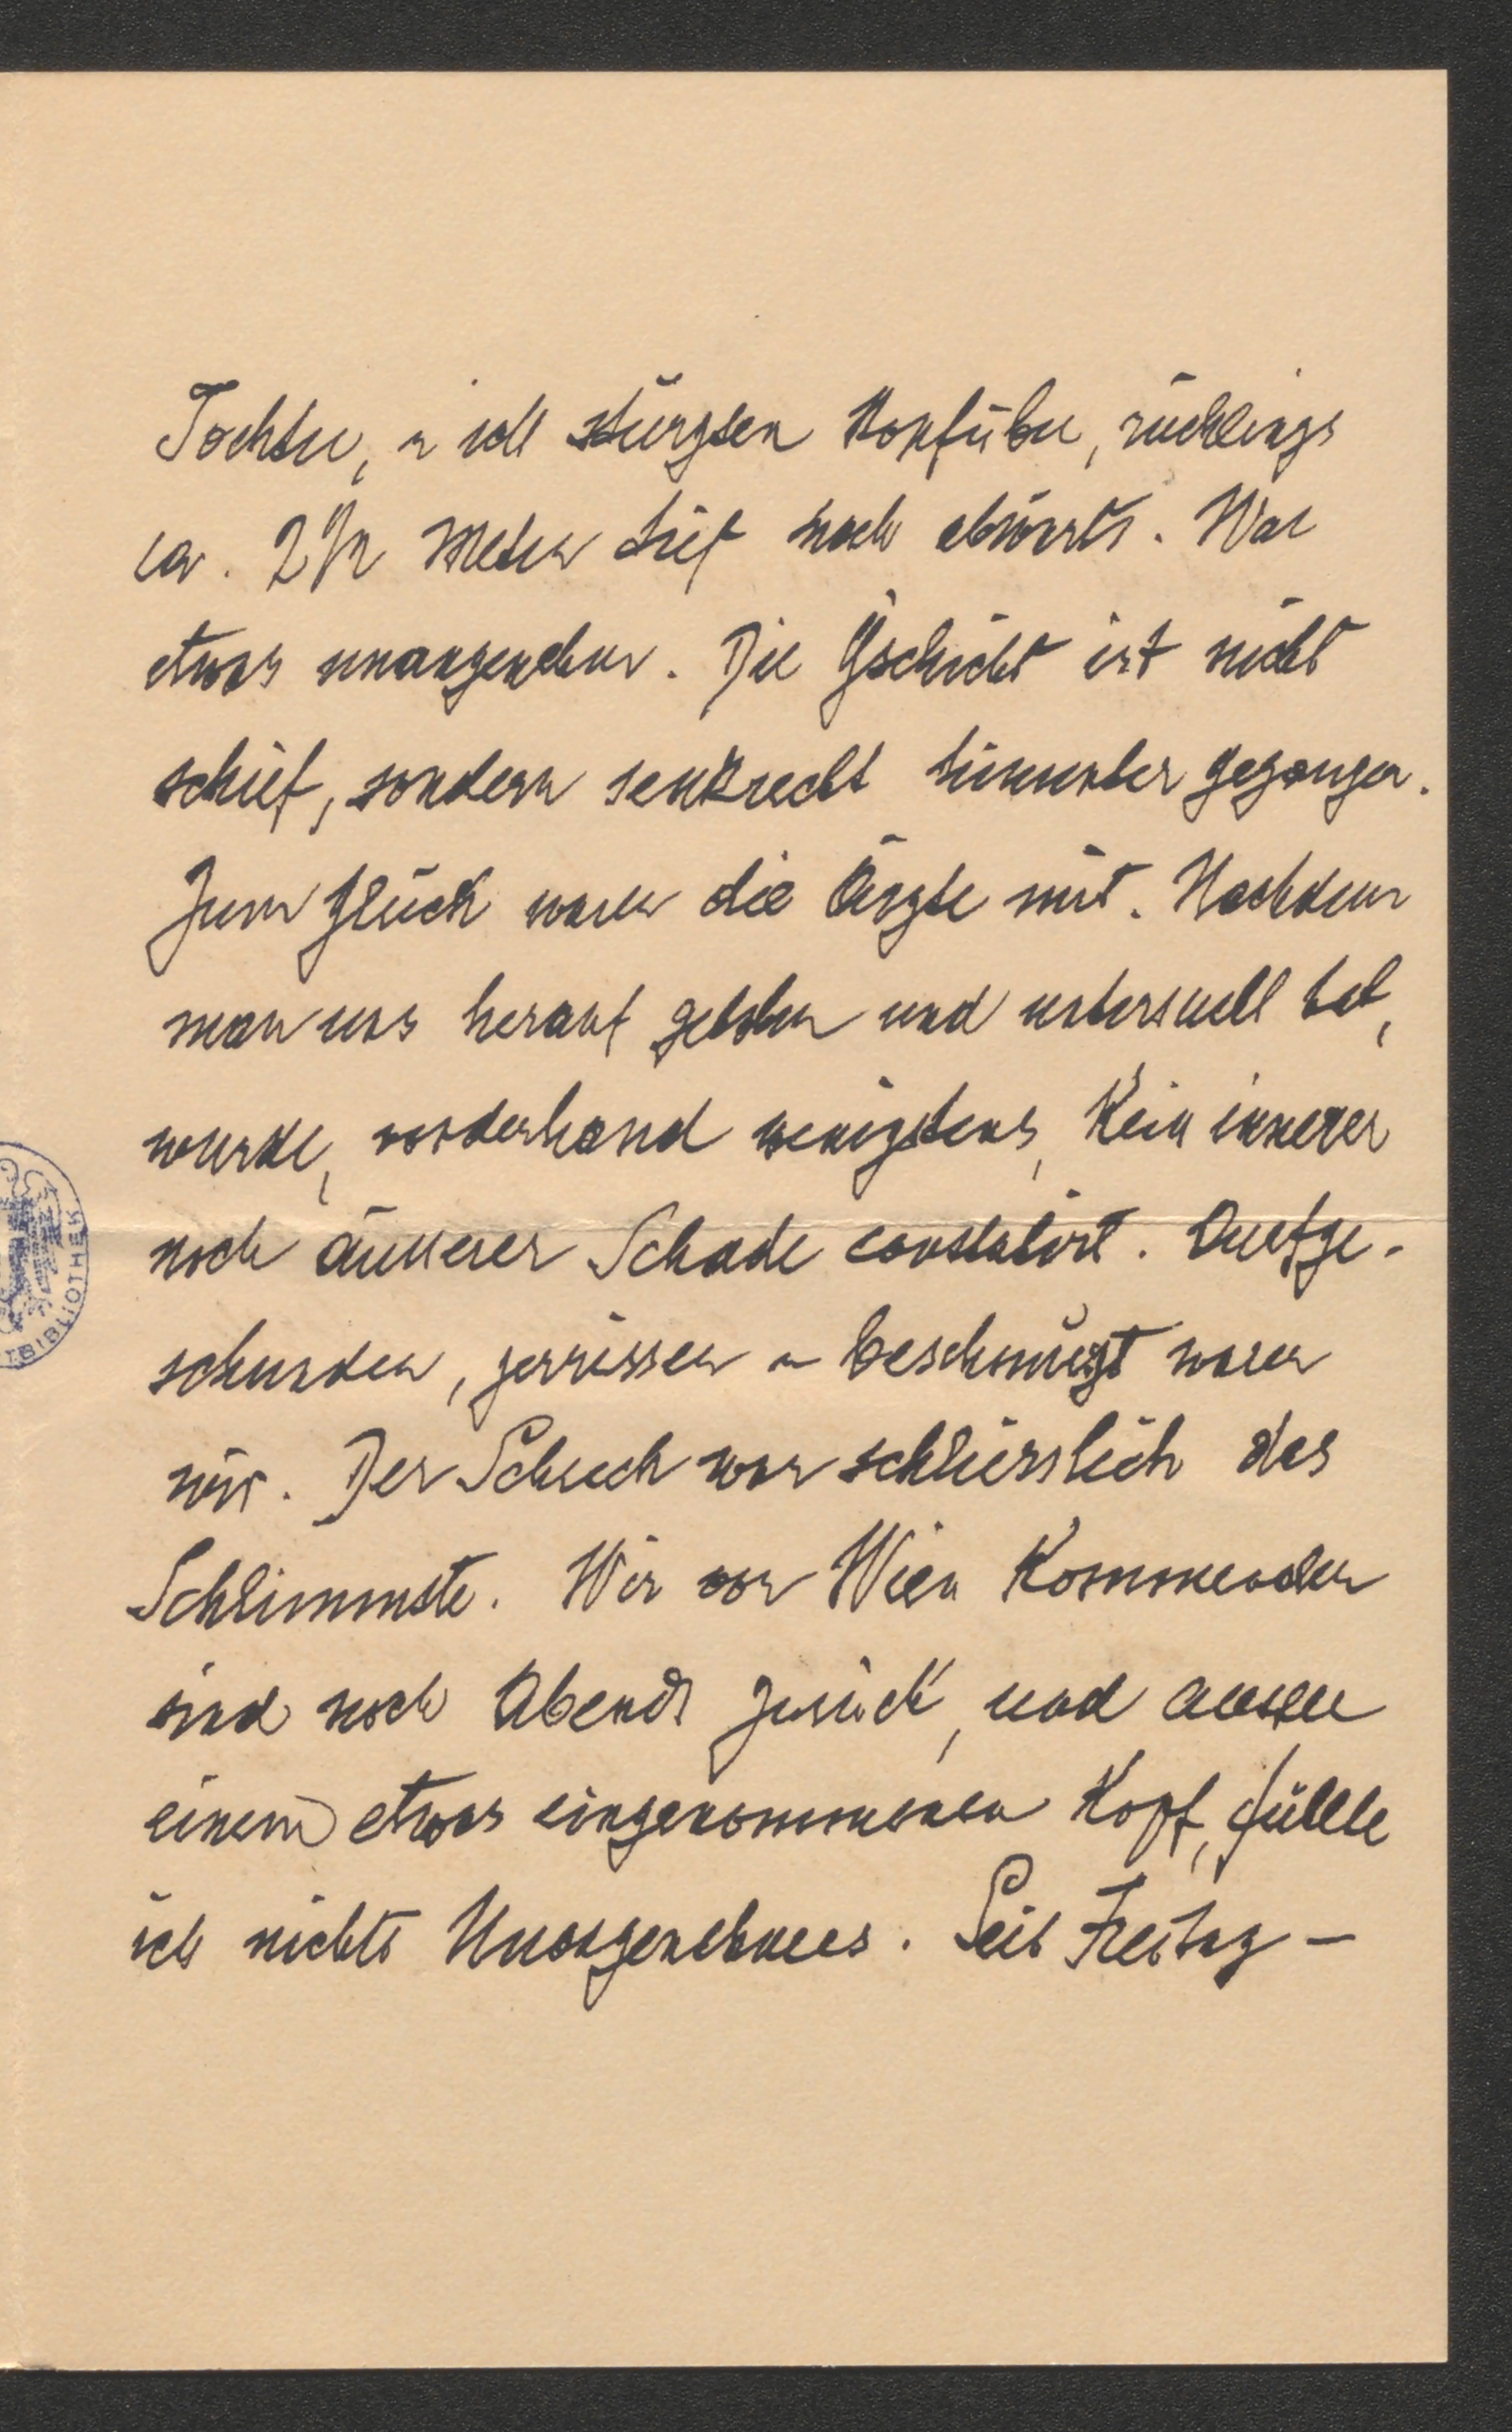 Tochter, u ich stürzten kopfüber, rücklings
ca. 2½ Meter tief nach abwärts. War
etwas unangenehm. Die Gschicht ist nicht
schief, sondern senkrecht hinunter gegangen.
Zum Glück waren die Ärzte mit. Nachdem
man uns herauf gehoben und untersucht hat,
wurde, vorderhand wenigstens, kein innerer
noch äusserer Schade constatirt. Aufge-
schunden, zerrissen u beschmutzt waren
wir. Der Schreck war schliesslich das
Schlimmste. Wir von Wien Kommenden
sind noch Abends zurück, und ausser
einem etwas eingenommenen Kopf, fühlte
ich nichts Unangenehmes. Seit Freitag –
BIBLIOTHEK